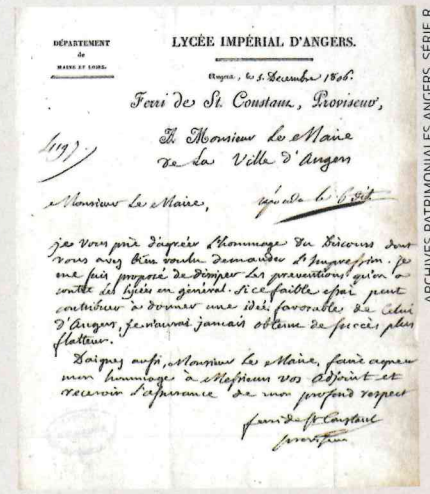 DÉPARTEMENT
de
MAINE ET LOIRE.
LYCÉE IMPÉRIAL D'ANGERS.
Angers, le 5. Decembre 1806.
Ferri de St. Constant, Proviseur,
A Monsieur Le Maire
De La Ville d'Angers
Monsieur Le Maire,
répondu le 6 dit
je vous prie d'agréer l'hommage du Discours dont
vous avez bien voulu demander l'impression. je
me suis proposé de dissiper les preventions qu'on a
contre les lycées en général. Si ce faible essai peut
contribuer à donner une idée favorable de Celui
d'Angers, je n'aurai jamais obtenu de succès plus
flatteur.
Daignez aussi, Monsieur Le Maire, faire agréer
mon hommage à Messieurs vos adjoint et
recevoir l'assurance de mon profond respect
ferri de St Constant
proviseur
ARCHIVES PATRIMONIALES ANGERS, SÉRIE R